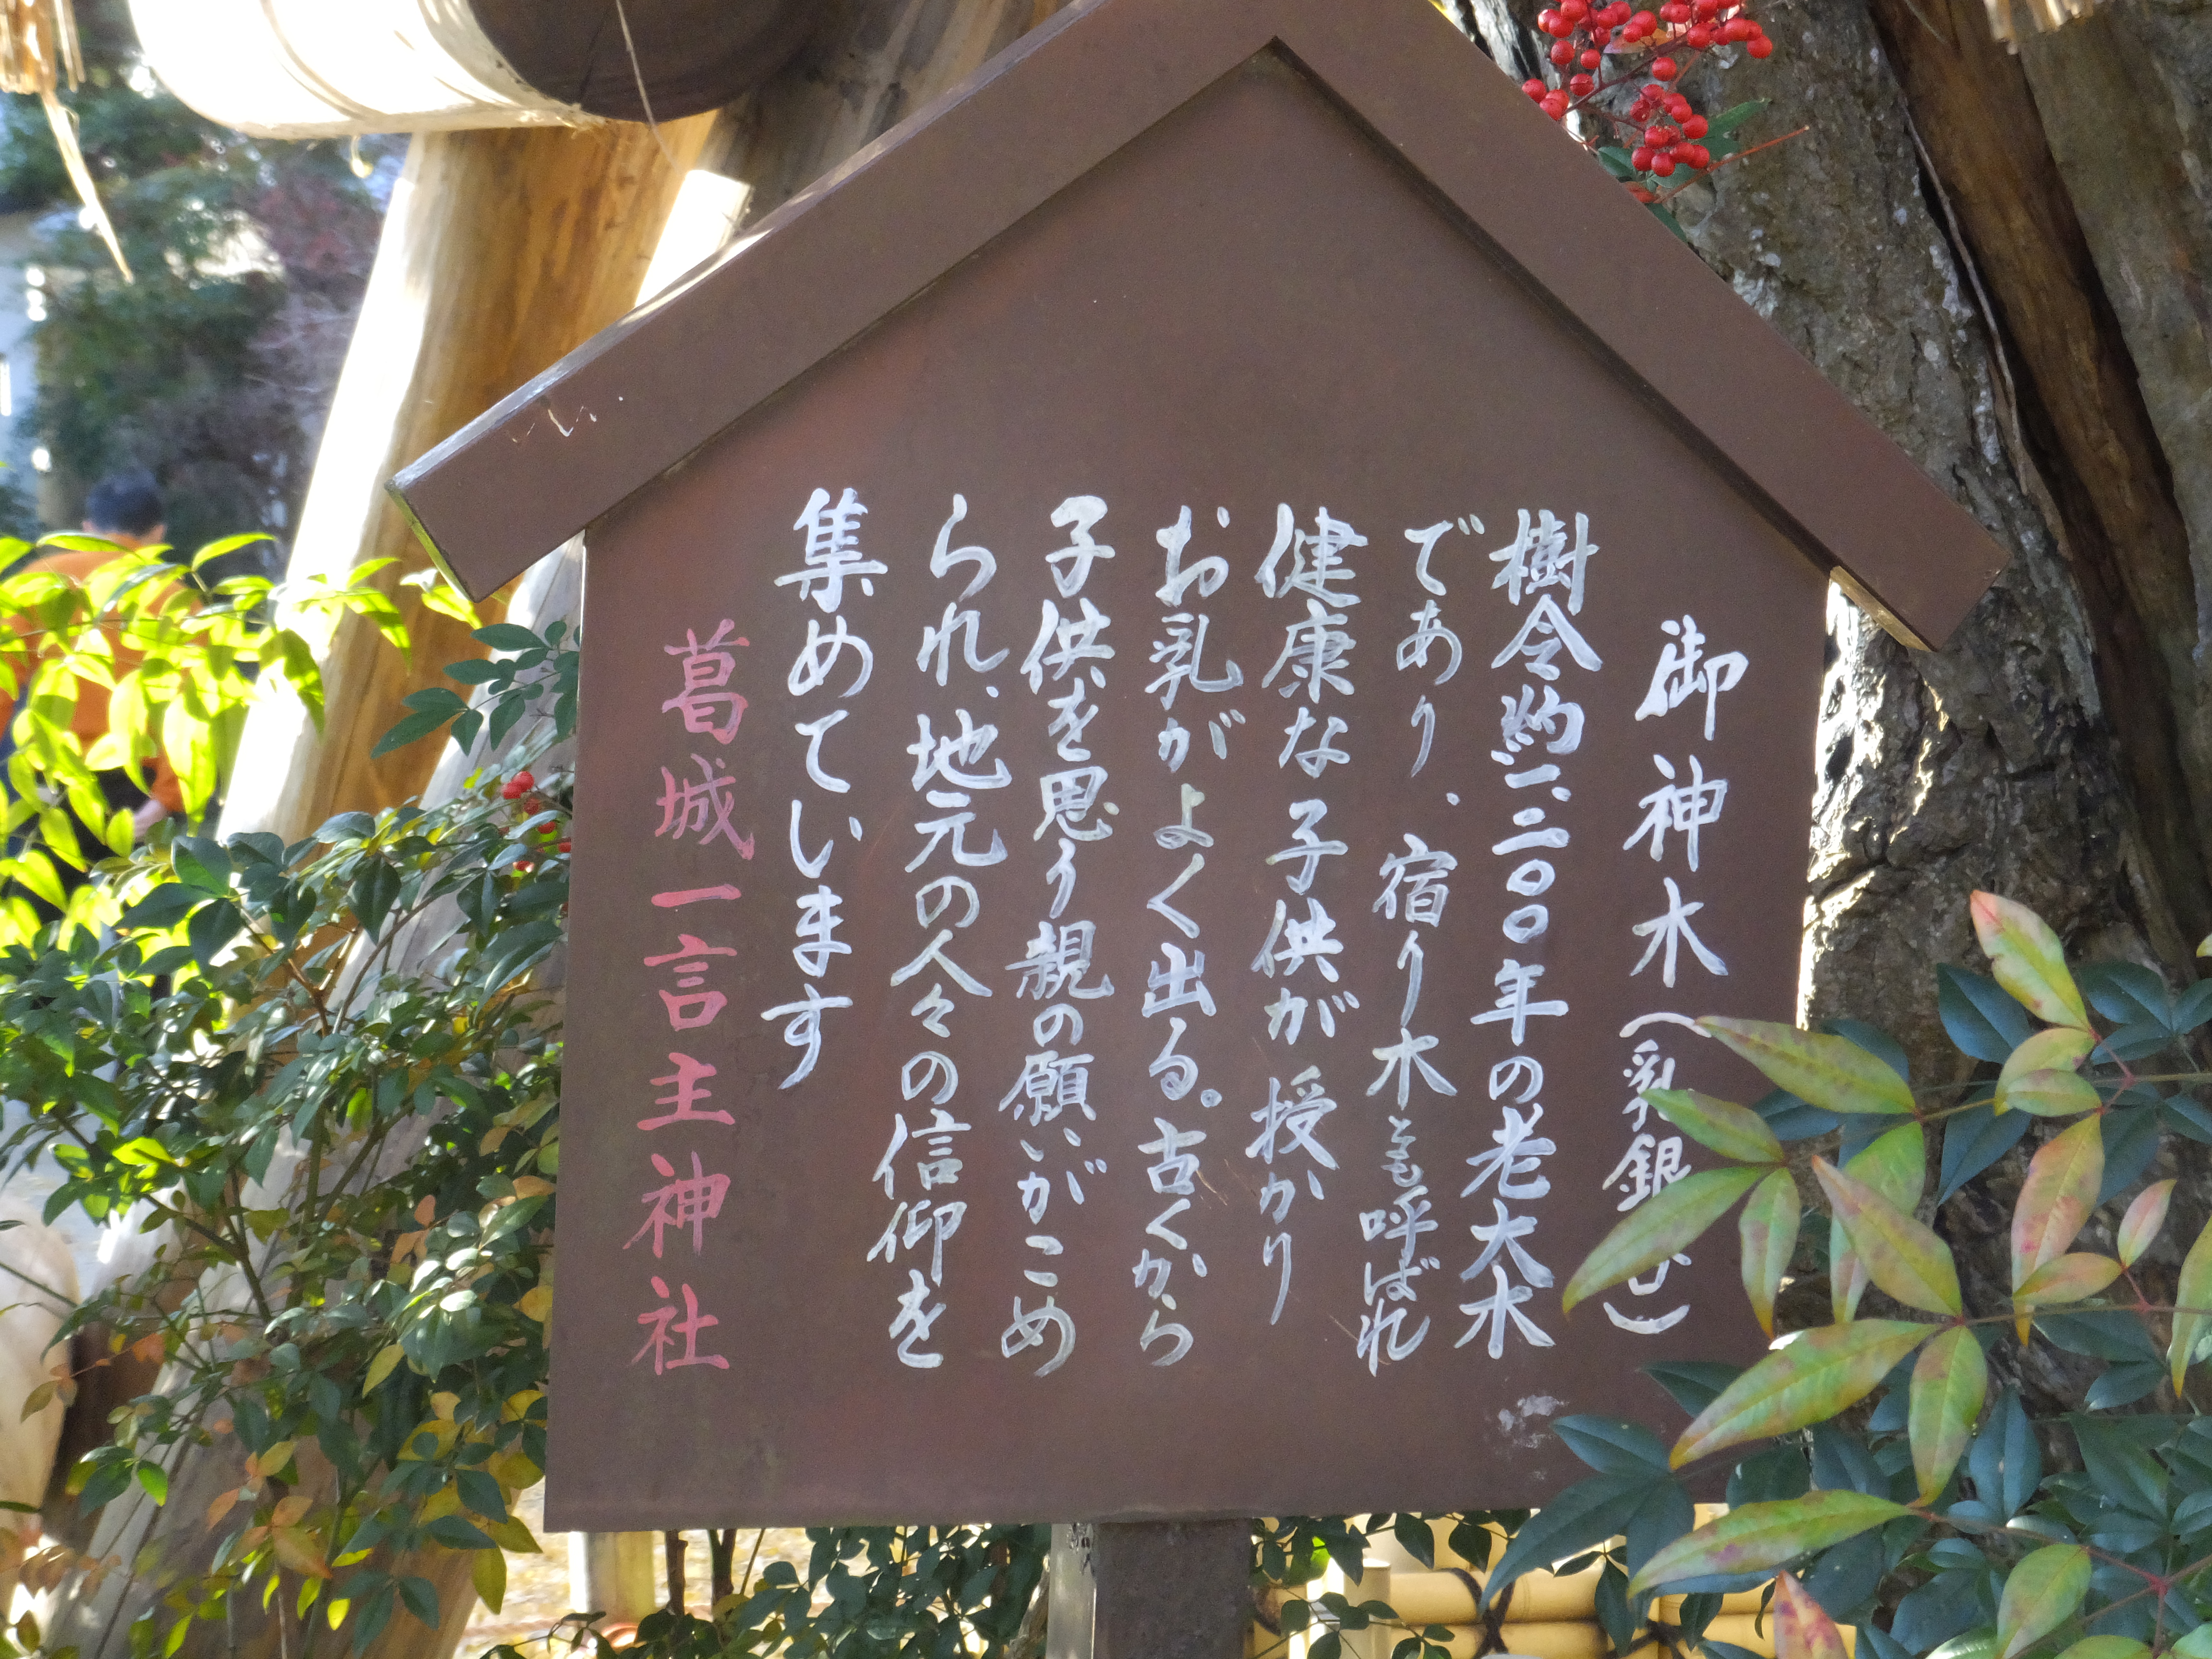 御神木（乳銀
樹令約一、二〇〇年の老大木
であり、宿り木とも呼ばれ
健康な子供が授かり
お乳がよく出る。古くから
子供を思う親の願いがこめ
られ、地元の人々の信仰を
集めています
葛城一言主神社